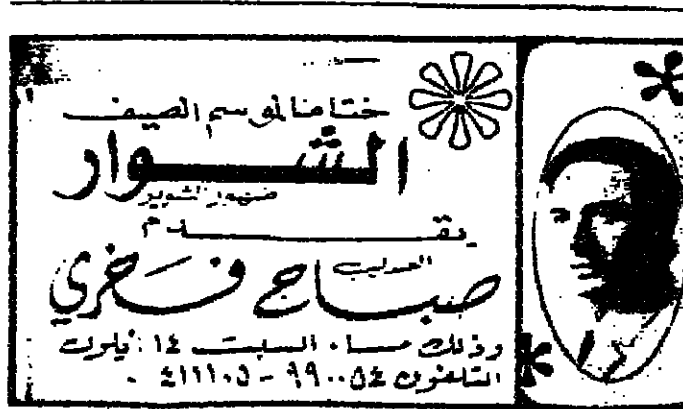 ختاما لموسم الصيف
الشوار
ضهور الشوير
يقدم
العندليب
صباح فخري
وذلك مساء السبت ١٤ أيلول
التلفون ٩٩٠٠٥٤ - ٤١١١٠٥